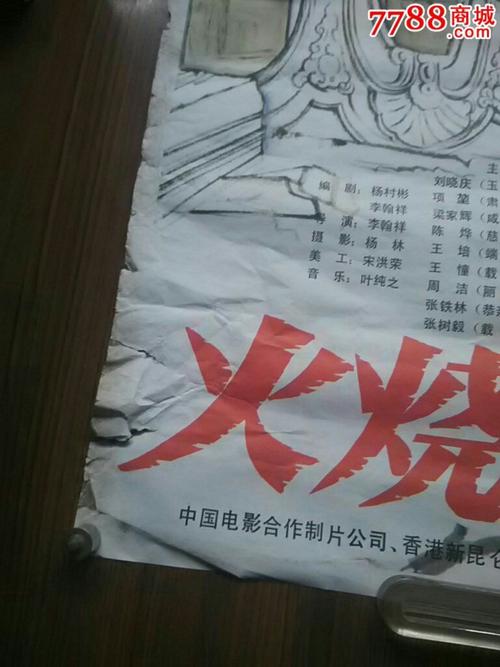 7788商城
主
编 剧：杨村彬
李翰祥
导 演：李翰祥
摄 影：杨 林
美 工：宋洪荣
音 乐：叶纯之
刘晓庆（王
项 堃（肃
梁家辉（咸
陈 烨（慈
王 培（端
王 憧（载
周 洁（丽
张铁林（恭亲
张树毅（载
火烧
中国电影合作制片公司、香港新昆仑